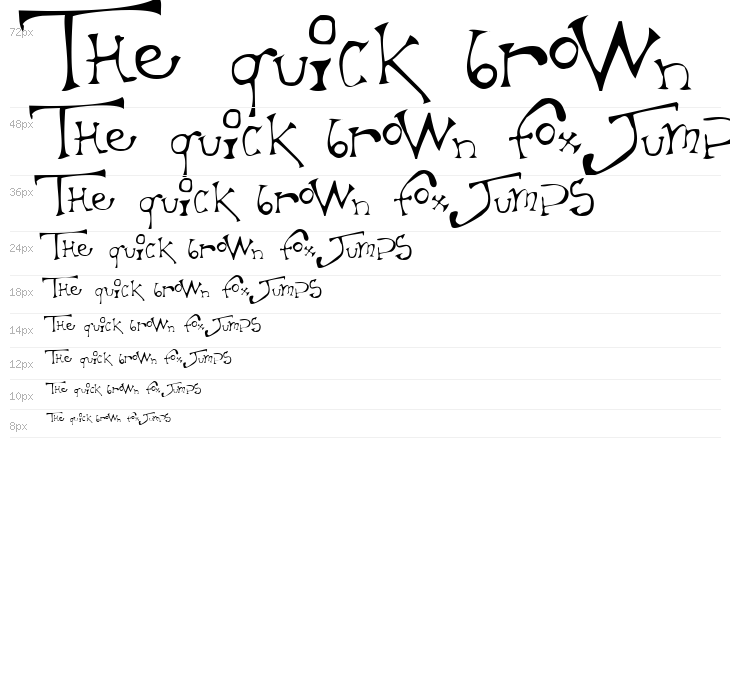 72px The quick brown
48px The quick brown fox Jump
36px The quick brown fox Jumps
24px The quick brown fox Jumps
18px The quick brown fox Jumps
14px The quick brown fox Jumps
12px The quick brown fox Jumps
10px The quick brown fox Jumps
8px The quick brown fox Jumps